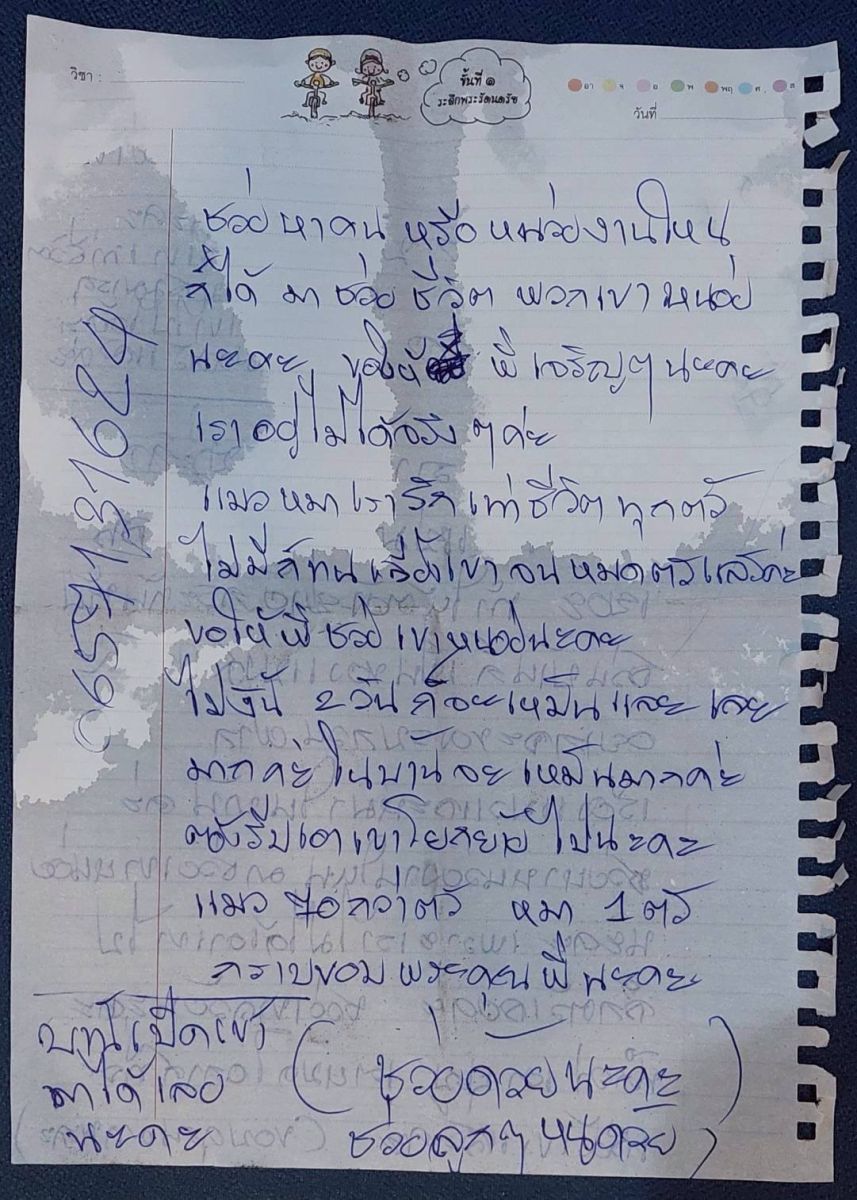 วิชา :
ชั้นที่ ๑
ระลึกพระรัตนตรัย
อา จ อ พ พฤ ศ ส
วันที่
ช่วยหาคน หรือหน่วยงานไหน
ก็ได้ มาช่วยชีวิต พวกเขาหน่อย
นะคะ ขอให้ พี่เจริญๆนะคะ
เราอยู่ไม่ได้จริงๆค่ะ
แมวหมาเรารักเท่าชีวิตทุกตัว
ไม่มี เลี้ยงเขาจนหมดตัวแล้วค่ะ
ขอให้พี่ช่วยเขาหน่อยนะคะ
ไม่งั้น 2 วันก็จะเหม็นและ เละ
มากค่ะในบ้านจะเหม็นมากค่ะ
ต้องรีบเอาเขาโยกย้ายไปนะคะ
แมว กว่าตัว หมา 1 ตัว
กราบขอบพระคุณพี่นะคะ
(ช่วยด้วยนะคะ)
ช่วยลูกๆหนูด้วย)
เปิดเข้า
มาได้เลย
นะคะ